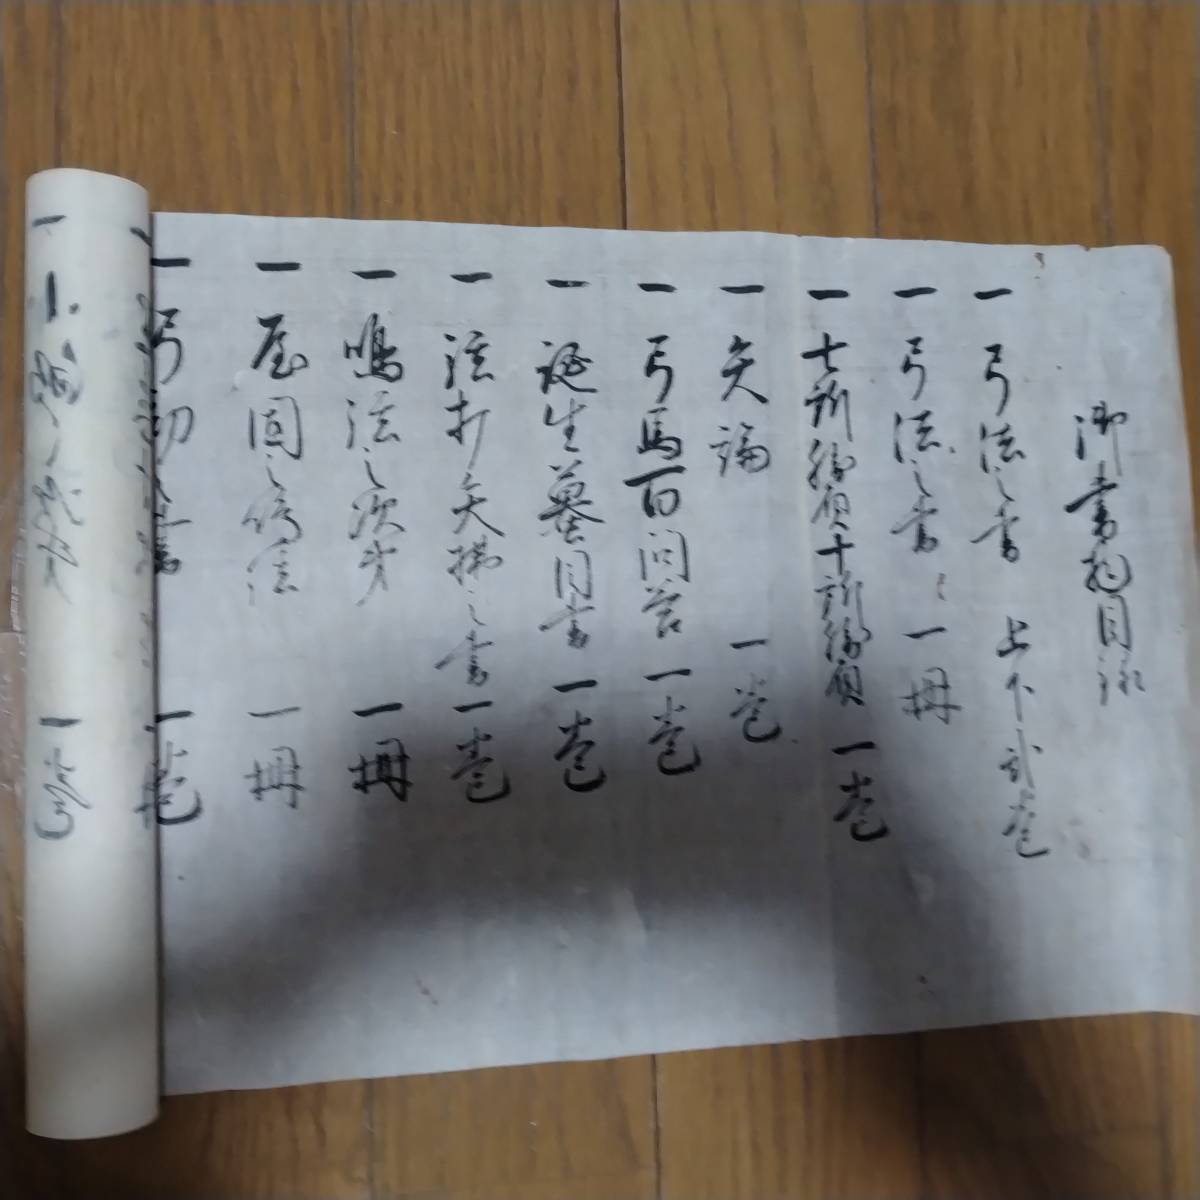 御書物目録
一 弓法之書 上下 弐巻
一 弓法之書 一冊
一 七訓勝負十訓勝負 一巻
一 矢論 一巻
一 弓馬百問答 一巻
一 誕生蟇目書 一巻
一 弦打矢拂之書 一巻
一 鳴弦之次第 一冊
一 屋固之 法 一冊
一 弓 書 一巻
一